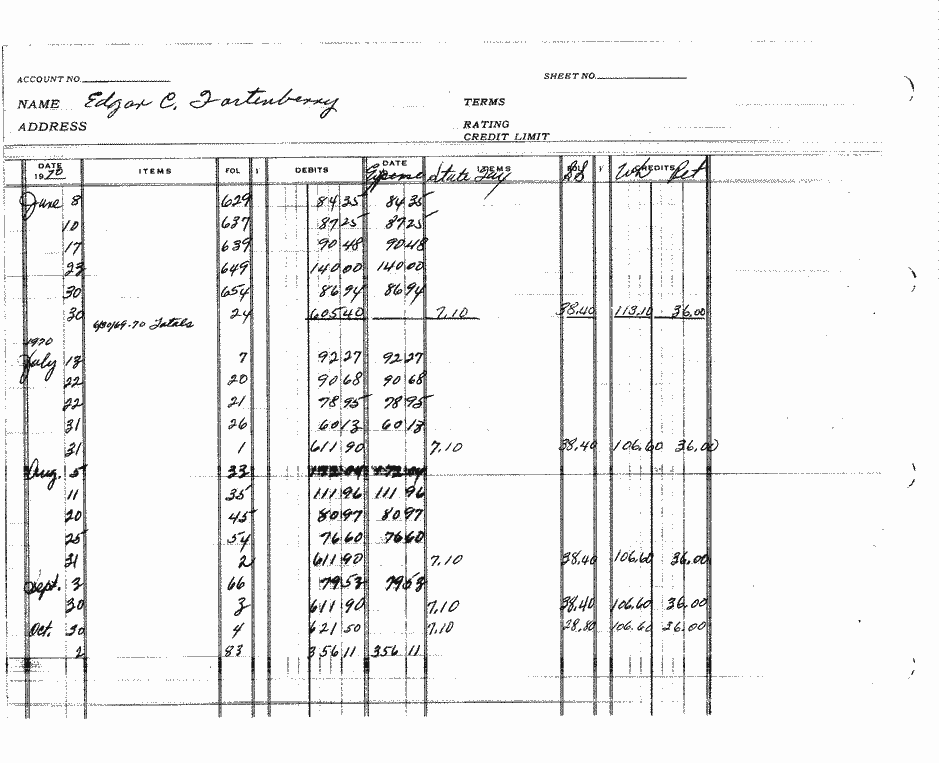 ACCOUNT NO. SHEET NO.
NAME Edgar C. Fortenberry TERMS
ADDRESS RATING
CREDIT LIMIT
DATE 1970 ITEMS FOL DEBITS DATE Expense State Tax ITEMS FOL CREDITS Wh Ret
June 8 629 84 35 84 35
10 637 87 25 87 25
17 639 90 48 90 48
23 649 140 00 140 00
30 654 86 94 86 94
30 6/30/69-70 Totals 24 605 40 7.10 38.40 113.10 36.00
1970
July 13 7 92 27 92 27
22 20 90 68 90 68
22 21 78 95 78 95
31 26 60 13 60 13
31 1 611 90 7.10 38.40 106.60 36.00
Aug. 5 33
11 35 111 96 111 96
20 45 80 97 80 97
25 54 76 60 76 60
31 2 611 90 7.10 38.40 106.60 36.00
Sept. 3 66 79 53 79 53
30 3 611 90 7.10 38.40 106.60 36.00
Oct. 30 4 621 50 7.10 28.80 106.60 36.00
2 83 356 11 356 11